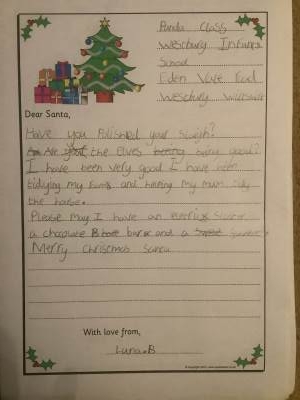 Panda Class
Westbury Infants
School
Eden Vale Road
Westbury Wiltshire
Dear Santa,
Have you Polished your Sleigh?
Are the elves being good?
I have been very good I have been
tidying my and helping my mum tidy
the house.
Please may I have an
a chocolate bar and a
Merry Christmas Santa
With love from,
Luna.B